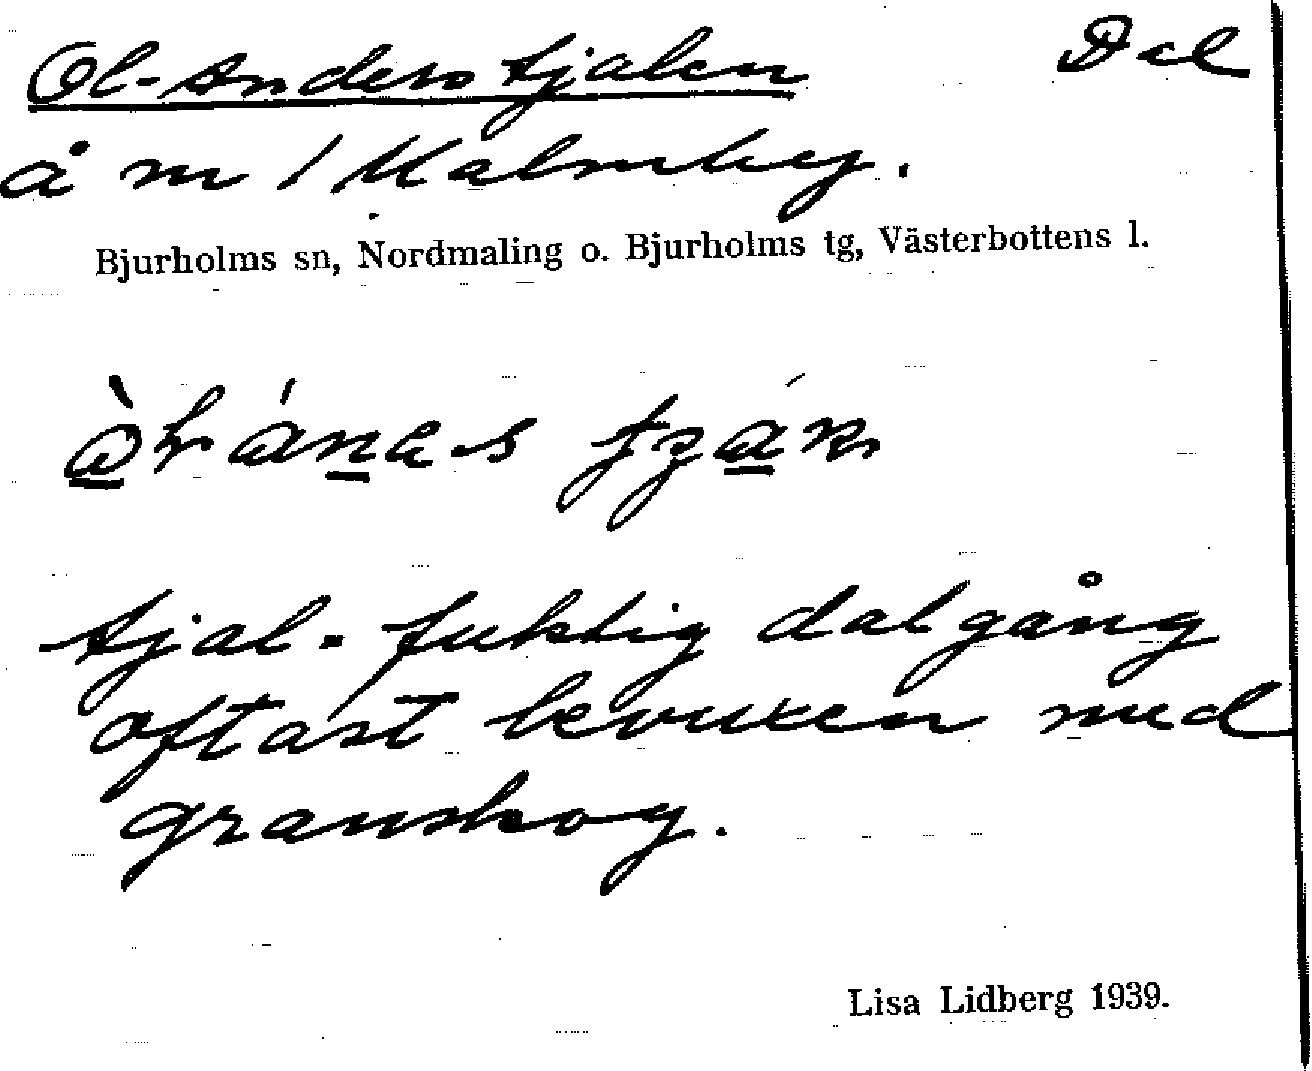 Ol-Anderstjalen Dal
å m / Malmby.
Bjurholms sn, Nordmaling o. Bjurholms tg, Västerbottens l.
tjal - fuktig dalgång
oftast bevuxen med
granskog.
Lisa Lidberg 1939.